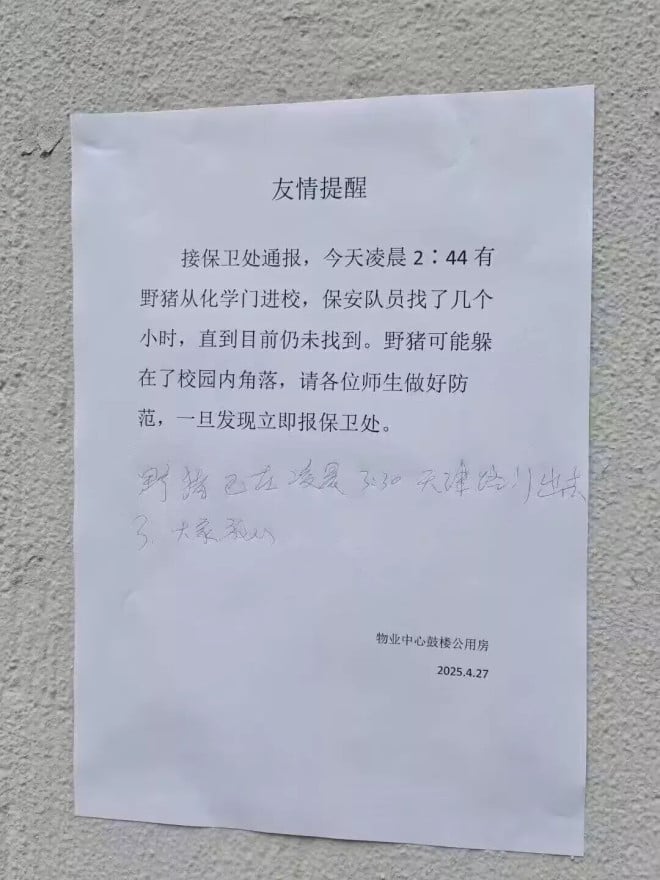 友情提醒
接保卫处通报，今天凌晨 2：44 有
野猪从化学门进校，保安队员找了几个
小时，直到目前仍未找到。野猪可能躲
在了校园内角落，请各位师生做好防
范，一旦发现立即报保卫处。
野猪已在凌晨3:30 天津路门出去
了，大家放心
物业中心鼓楼公用房
2025.4.27